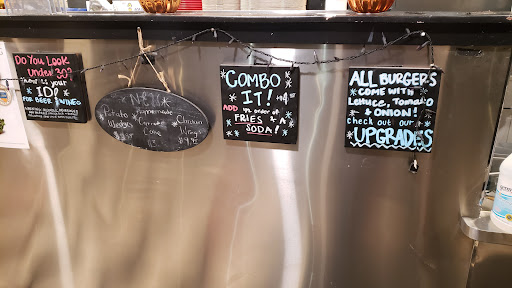 Do You Look
under 30?
your
ID!
FOR BEER & WINE
NEW
Potato
Wedges
Homemade
Carrot
Cake
Chicken
Wings
COMBO
IT!
ADD an order of
FRIES & A
SODA!
ALL BURGERS
COME WITH
Lettuce, Tomato
& ONION!
check out our
UPGRADES